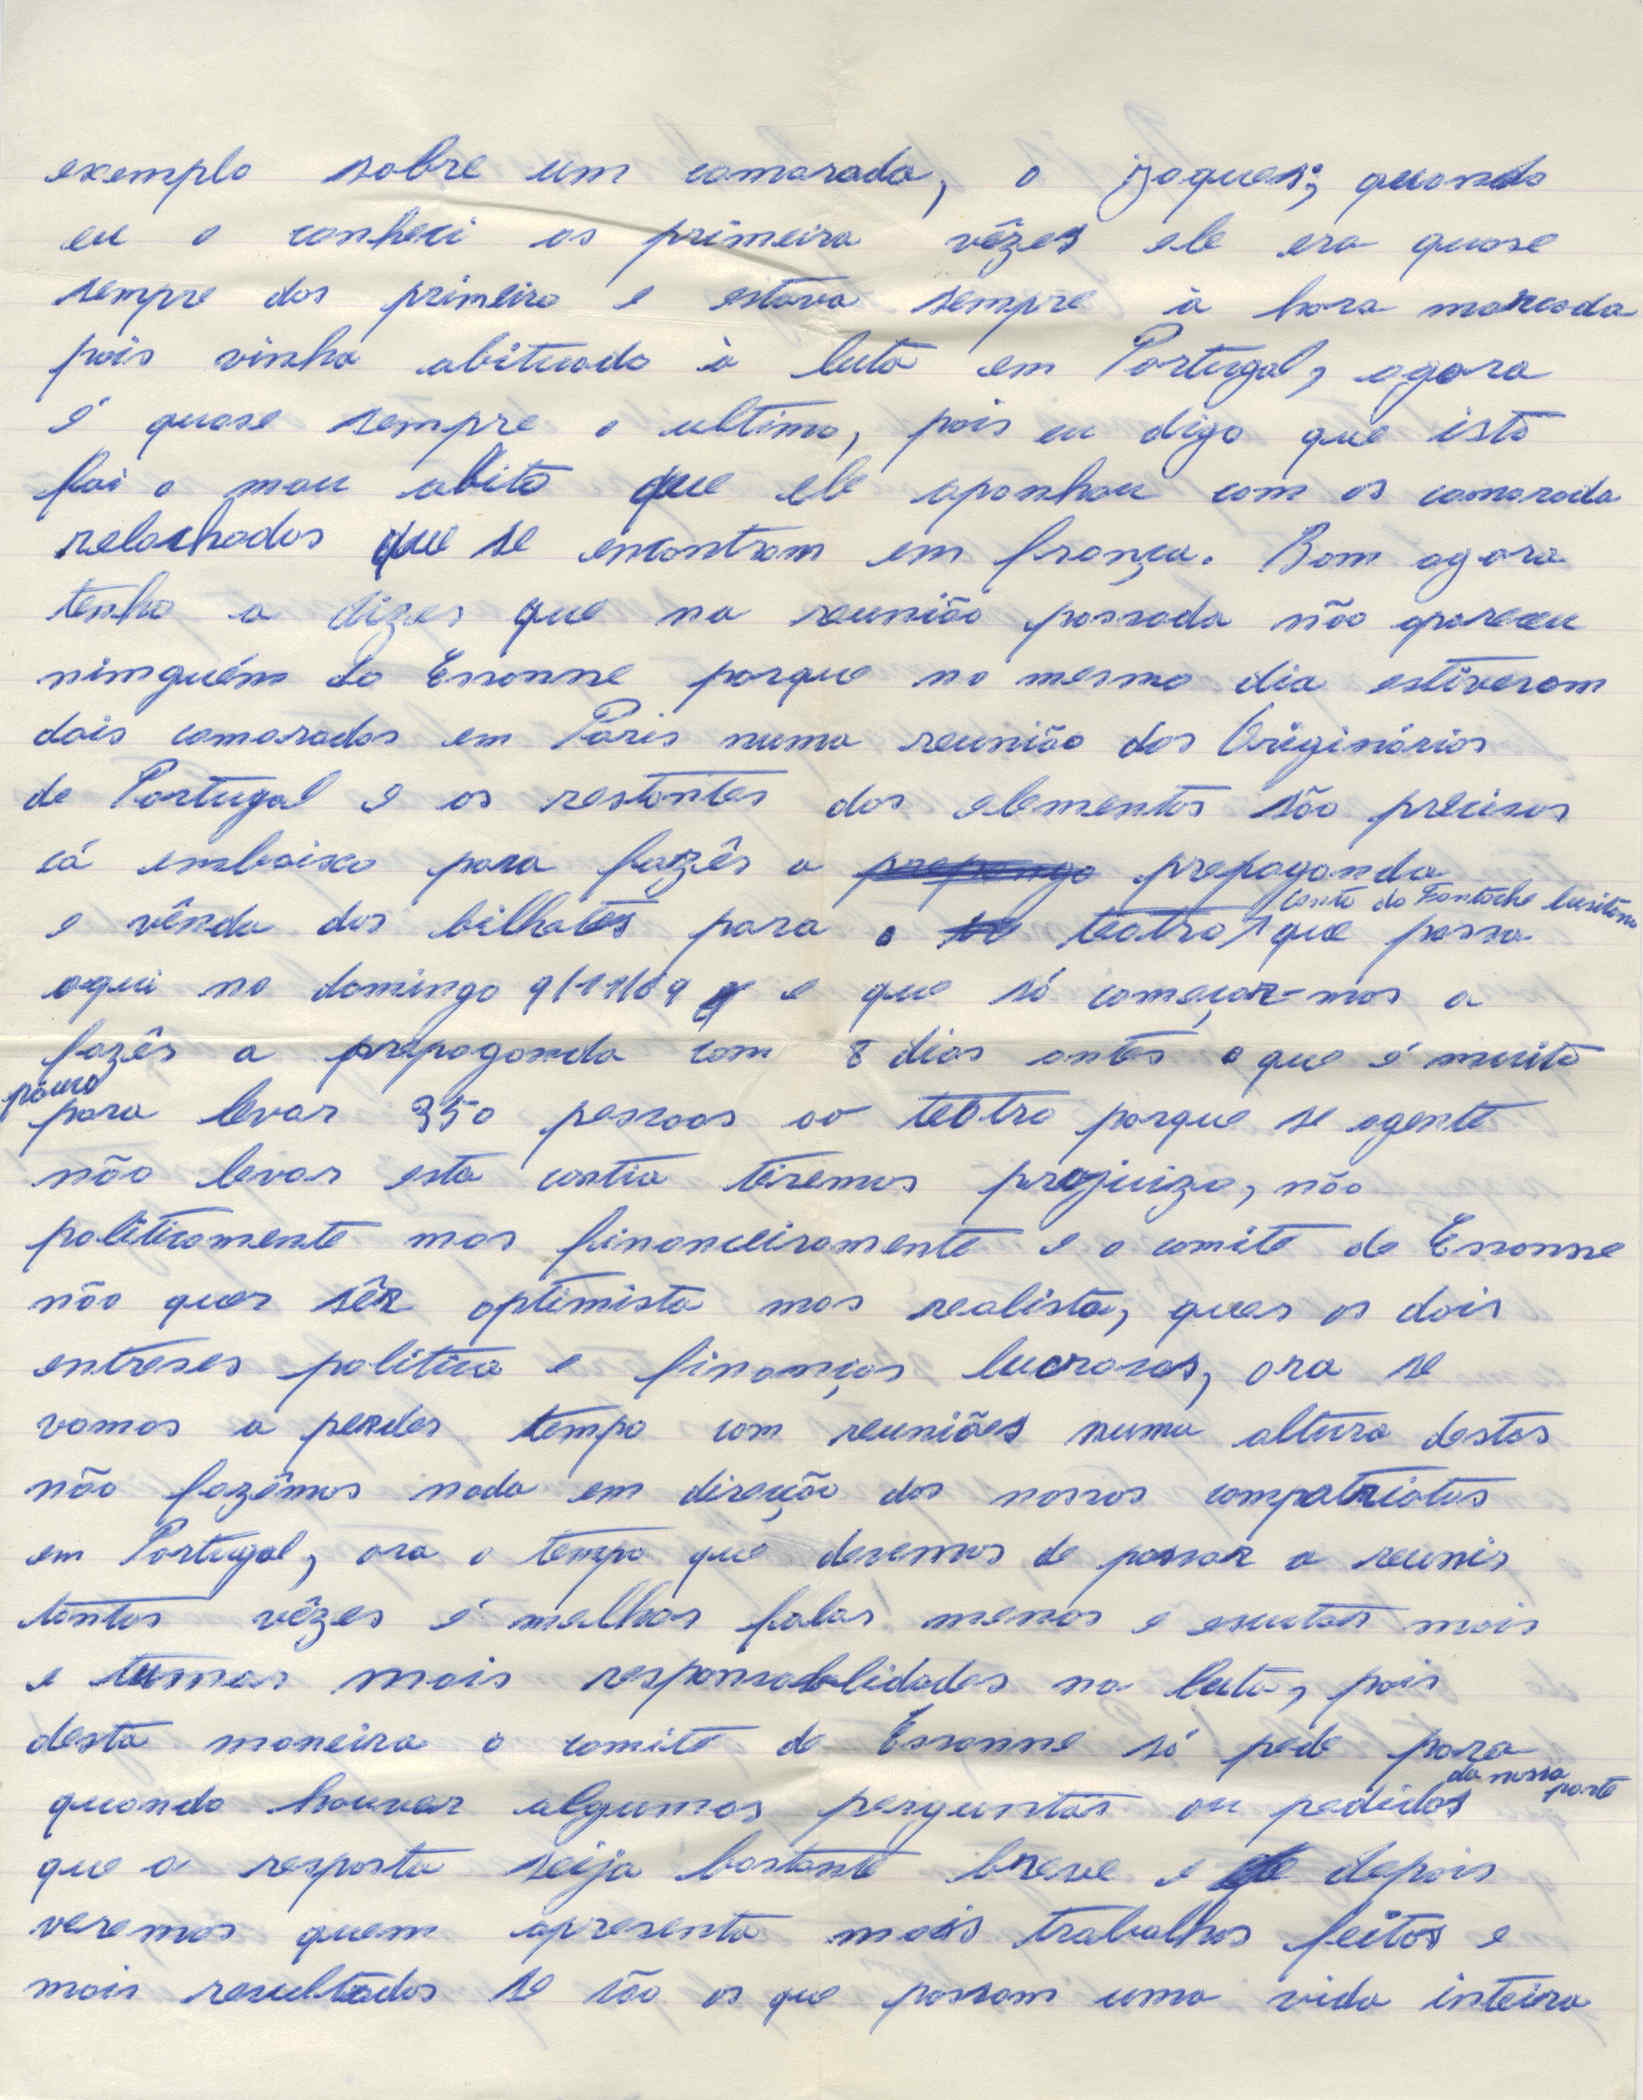 exemplo sobre um camarada, o Jaques; quando
eu o conheci as primeira vêzes ele era quase
sempre dos primeiro e estava sempre à hora marcada
pois vinha abituado à luta em Portugal, agora
é quase sempre o ultimo, pois eu digo que isto
foi o mau abito que ele apanhou com os camarada
relachados que se encontram em frança. Bom agora
tenho a dizer que na reunião passada não apareceu
ninguém do Essonne porque no mesmo dia estiveram
dois camarados em Paris numa reunião dos Originários
de Portugal e os restantes dos elementos são precisos
cá embaixo para fazêr a propaganda
e vênda dos bilhates para o teatro canto do Fantoche lusitano que passa
aqui no domingo 9/11/69 e que só começar-mos a
fazêr a prepaganda com 8 dias antes o que é muito
pouco para levar 350 pessoas ao teatro porque se agente
não levar esta contia teremos prejuizo, não
politicamente mas financeiramente e o comite de Essonne
não quer sêr optimista mas realista, quer os dois
entreses politica e finanças lucrosas, ora se
vamos a perder tempo com reuniões numa altura destas
não fazêmos nada em direção dos nossos compatriotas
em Portugal, ora o tempo que devemos de passar a reunir
tantas vêzes é melhor falar menos e escutar mais
e tumar mais responsablidades na luta, pois
desta maneira o comite de Essonne só pede para
quando houver algumas perguntas ou pedidos da nossa parte
que a resposta seija bastante breve e depois
veremos quem apresenta mais trabalhos feitos e
mais resultados se são os que passam uma vida inteira